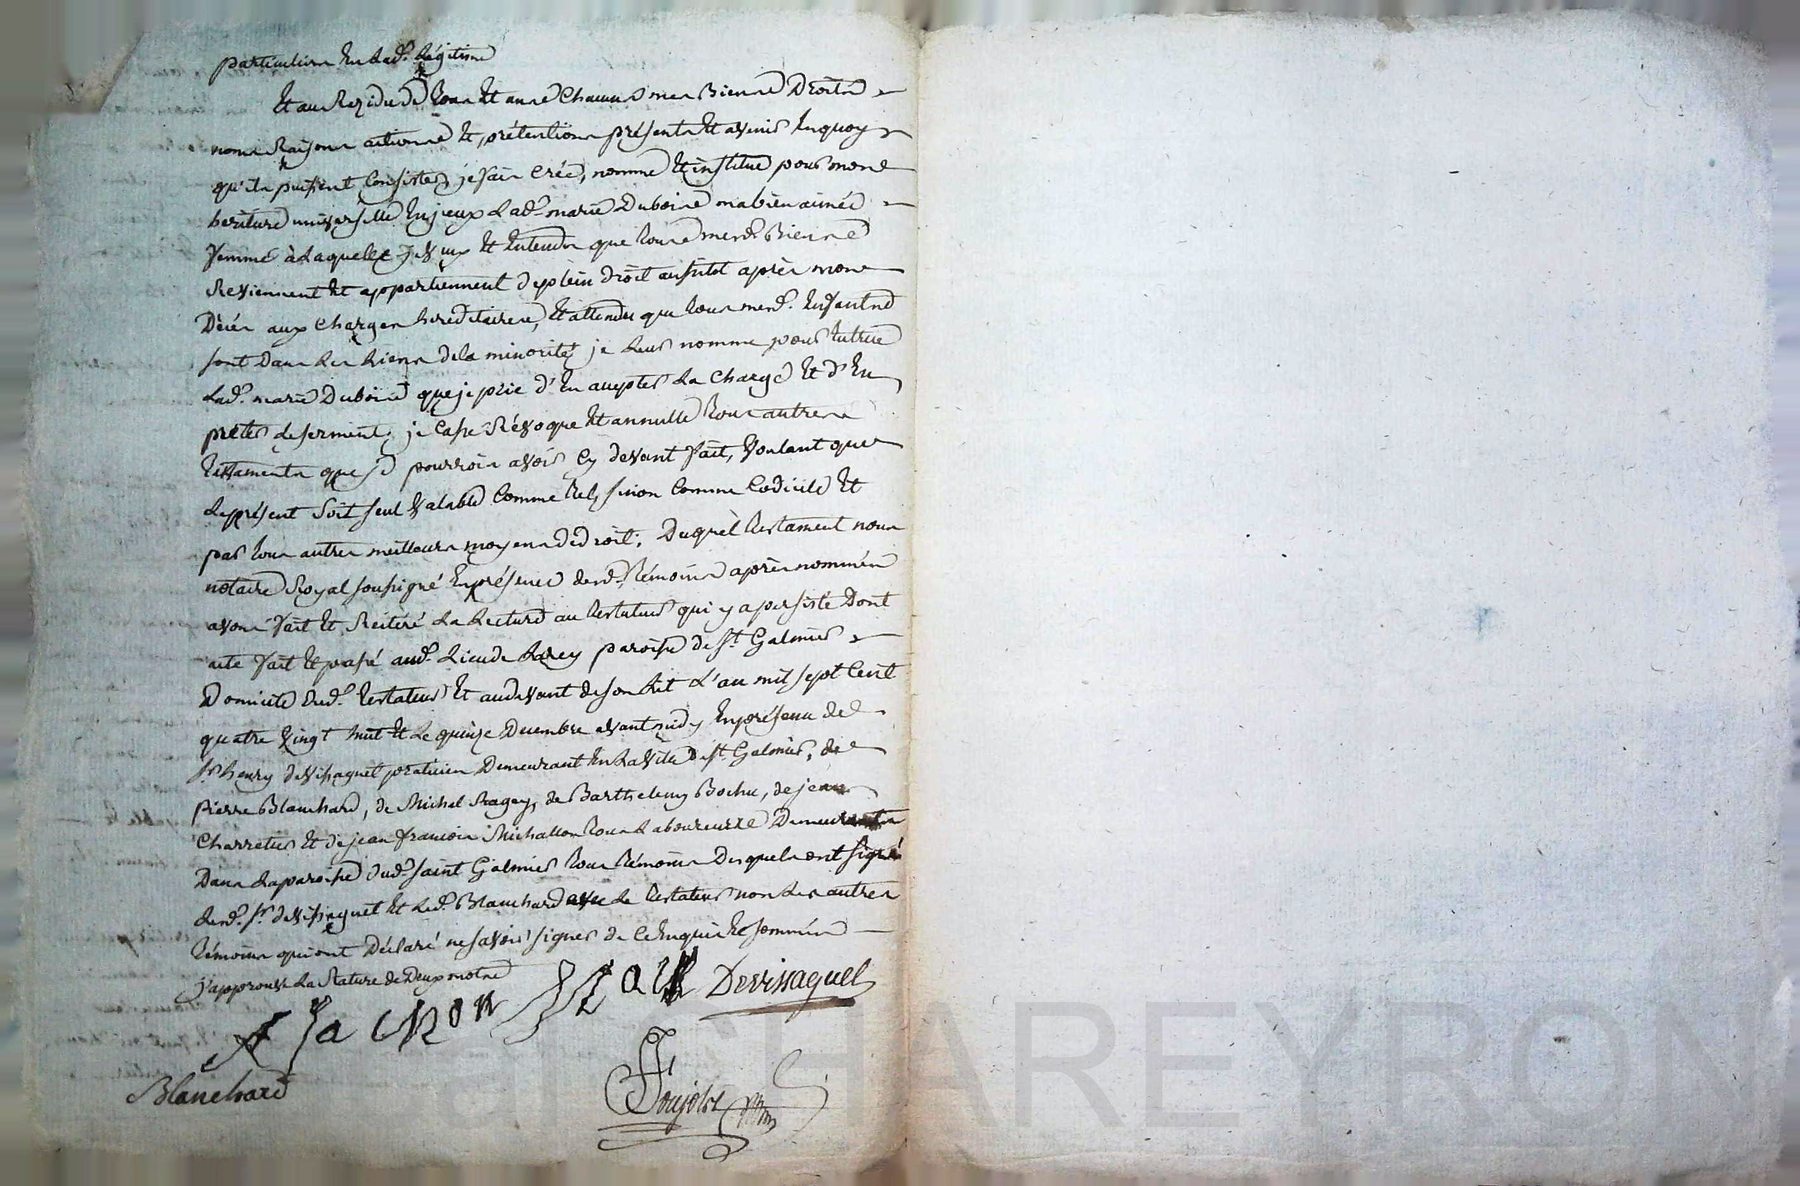 particuliere En Lad.e Légitime
Et au Rezidu de tous Et uns Chacuns mes Biens Droits
noms Raisons actions Et prétentions présents Et avenir Enquoy
qu'ils puissent Consister, je fais Créé, nomme Et institue pour mon
heritiere universelle Lad.e marie Dubois ma bien aimée
femme à Laquelle je veux Et Entends que tous mesd. Biens
Reviennent Et appartiennent de plein droit aussitot après mon
Décès aux charges hereditaires, Et attendu que tous mesd. Enfants
sont Dans Les Liens dela minorité je Leur nomme pour tutrice
Lad.e marie Dubois que je prie d'En accepter La charge Et d'En
prêter Le serment; je Casse Révoque Et annulle tous autres
testaments que je pourrois avoir Cy devant fait, Voulant que
Le présent Soit seul Valable Comme tel, sinon Comme Codicile Et
par tous autres meilleurs moyens de droit; Duquel testament nous
notaire Royal soussigné En présence desd. témoins après nommés
avons fait Et Réitéré La Lecture au testateur qui y a persisté Dont
acte fait Et passé aud. Lieu de paroisse de St Galmier
Domicile dud. testateur Et audevant de son Lit L'an mil sept Cent
quatre vingt huit Et Le quinze Decembre avant midy En présence de
Sr henry devissaguet praticien Demeurant En La Ville de St Galmier, de
pierre Blanchard, de Michel Ragey, de Barthelemy Bochu, de jean
Charretier Et de jean francois Michallon tous Laboureurs Demeurants
Dans La paroisse dud. saint Galmier tous témoins Desquels ont signé
Lesd. Sr devissaguet Et Led. Blanchard avec Le testateur non Les autres
témoins qui ont Déclaré ne savoir signer de Ce Enquis Et sommés
j'approuve La Rature de Deux mots
Devissaguet
Blanchard
CHAREYRON